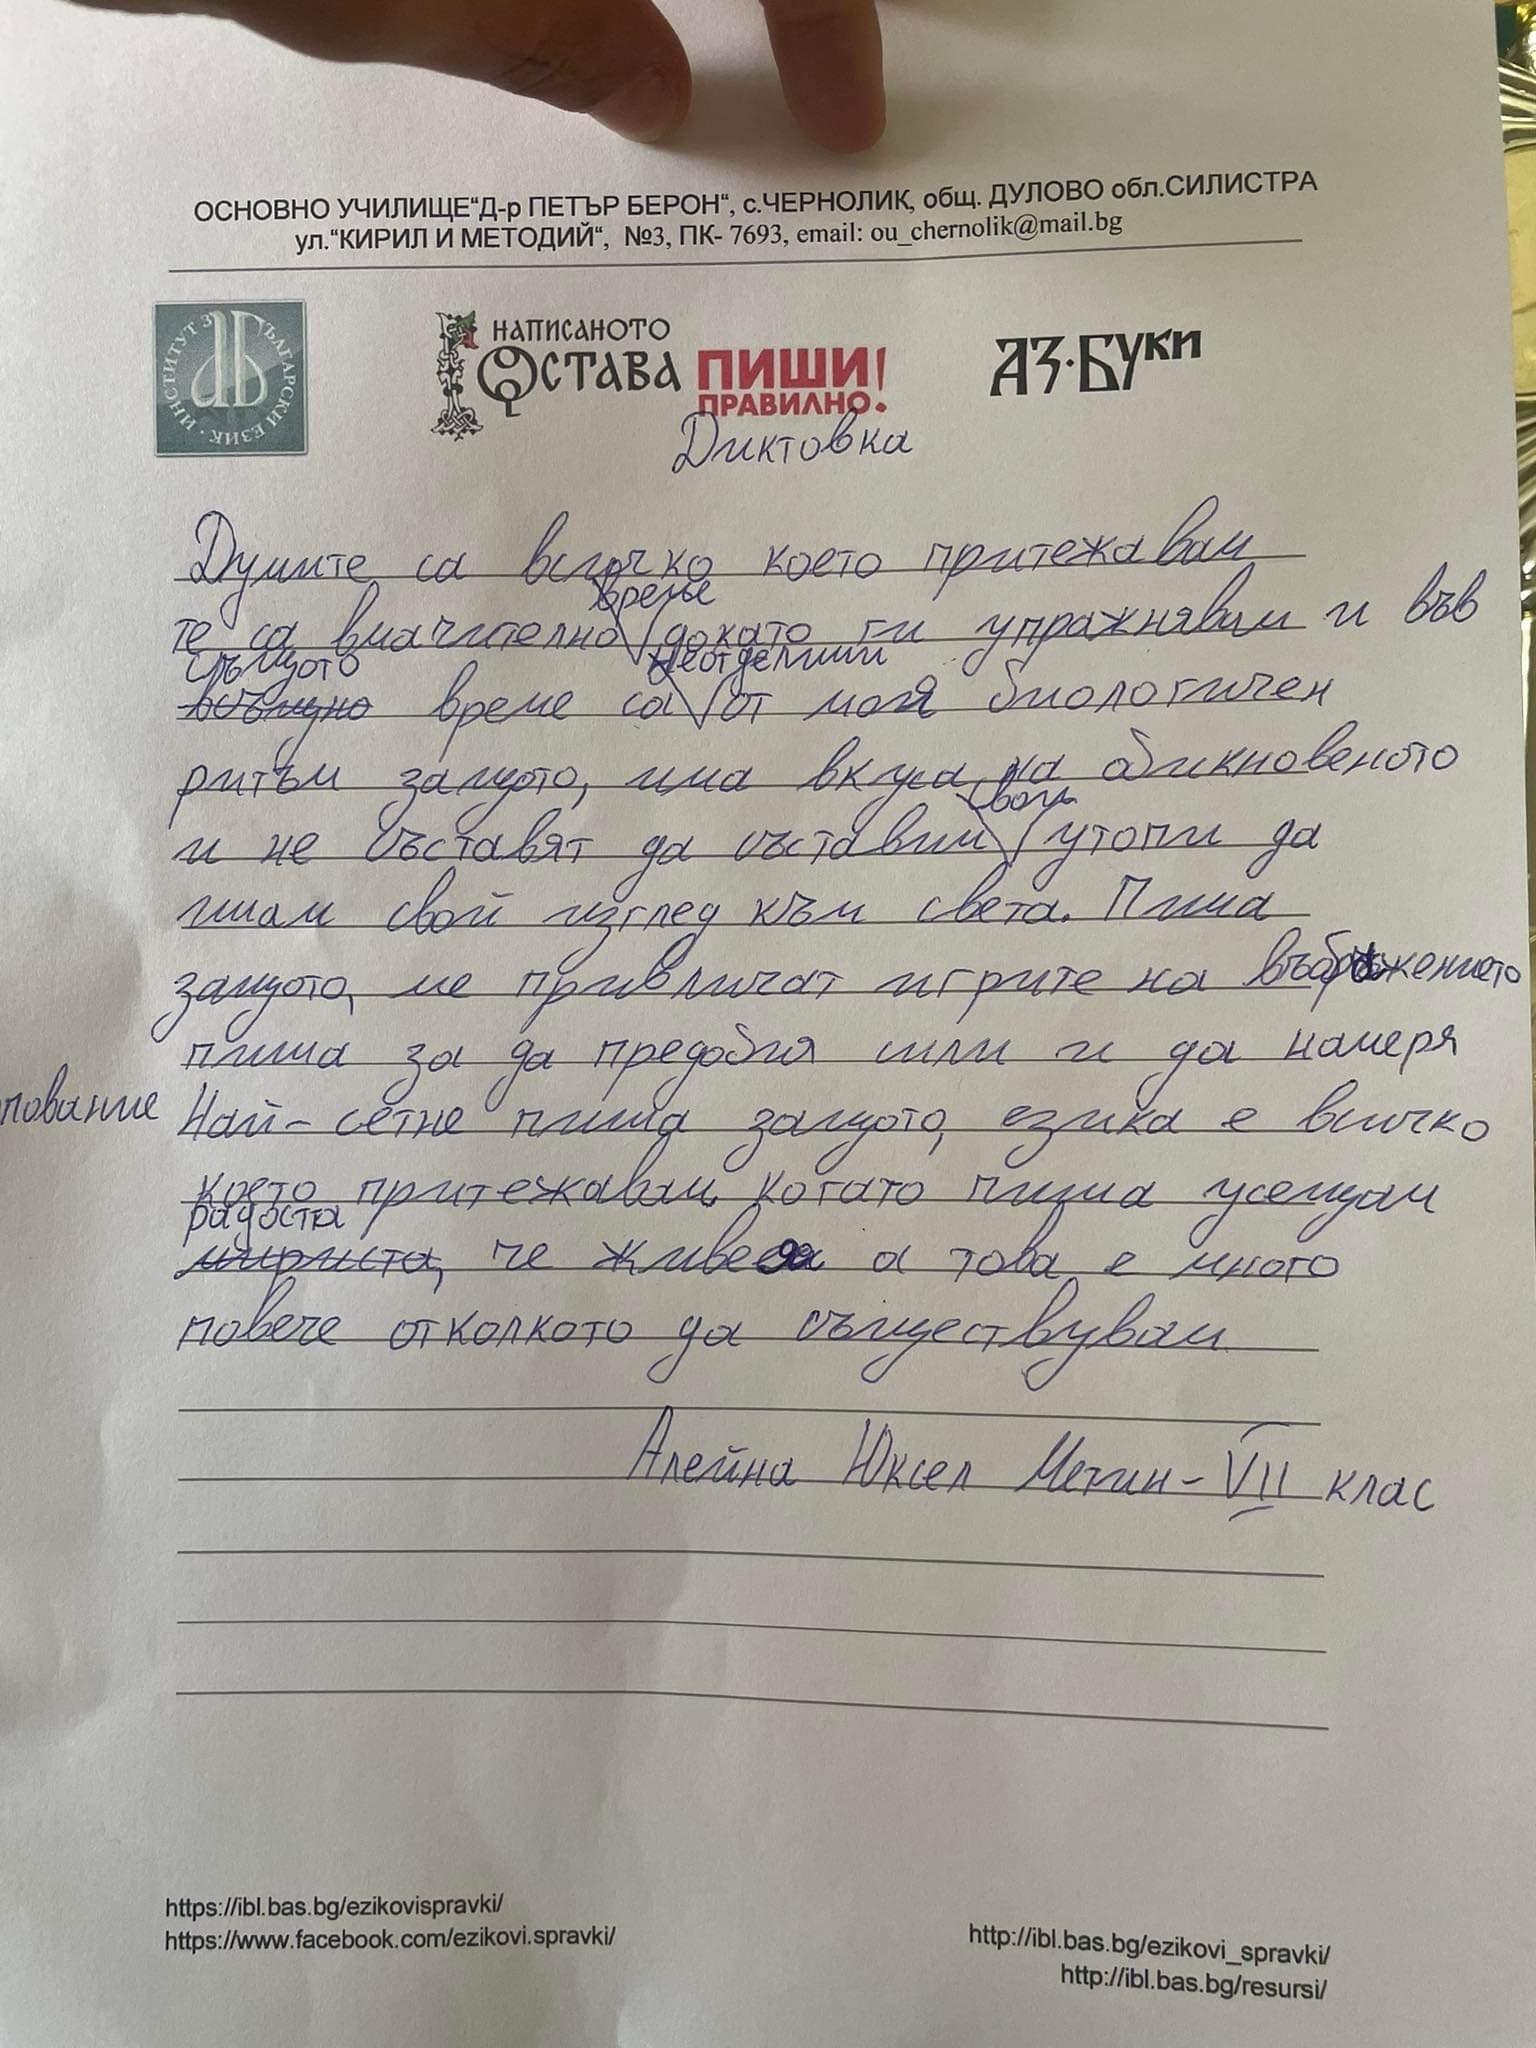 ОСНОВНО УЧИЛИЩЕ“Д-р ПЕТЪР БЕРОН“, с.ЧЕРНОЛИК, общ. ДУЛОВО обл.СИЛИСТРА
ул.“КИРИЛ И МЕТОДИЙ“, №3, ПК- 7693, email: ou_chernolik@mail.bg
ИНСТИТУТ ЗА БЪЛГАРСКИ ЕЗИК
НАПИСАНОТО ОСТАВА ПИШИ ПРАВИЛНО!
АЗ·БУКИ
Диктовка
Думите са всичко което притежавам
време
те са вначително докато ги упражнявам и във
същото неотделими
всъщно време са от моя биологичен
ритъм защото, има вкуса на обикновеното
свои
и не съставят да съставим утопи да
имам свой изглед към света. Пиша
защото, ме привличат игрите на въображението
пиша за да предобия сили и да намеря
Най-сетне пиша защото, езика е всичко
което притежавам когато пиша усещам
радостта
че живея а това е много
повече отколкото да съществувам
Алейна Юксел Метин-VII клас
https://ibl.bas.bg/ezikovispravki/
https://www.facebook.com/ezikovi.spravki/
http://ibl.bas.bg/ezikovi_spravki/
http://ibl.bas.bg/resursi/